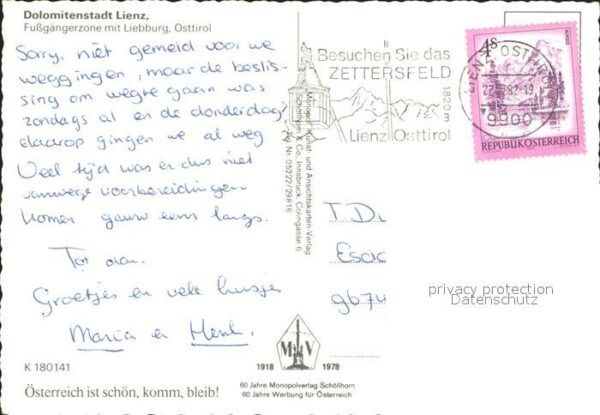 Dolomitenstadt Lienz,
Fußgängerzone mit Liebburg, Osttirol
Sorry, niet gemeld voor we
weggingen, maar de beslis-
sing om weg te gaan was
zondags al en de donderdag
daarop gingen we al weg
Veel tijd was er dus niet
vanwege voorbereidingen
Komen gauw eens langs.
Tot dan.
Groetjes en vele kusjes
Maria en Henk.
K 180141
Österreich ist schön, komm, bleib!
Kunst- und Ansichtskarten-Verlag
Schöllhorn & Co., Innsbruck, Colingasse 6
Tel. Nr. 05222/29816
1918 MV 1978
60 Jahre Monopolverlag Schöllhorn
60 Jahre Werbung für Österreich
Besuchen Sie das
ZETTERSFELD
1820m
Lienz Osttirol
LIENZ, OSTTIROL
9900
4S
REPUBLIK ÖSTERREICH
T. D
Esc
9674
privacy protection
Datenschutz